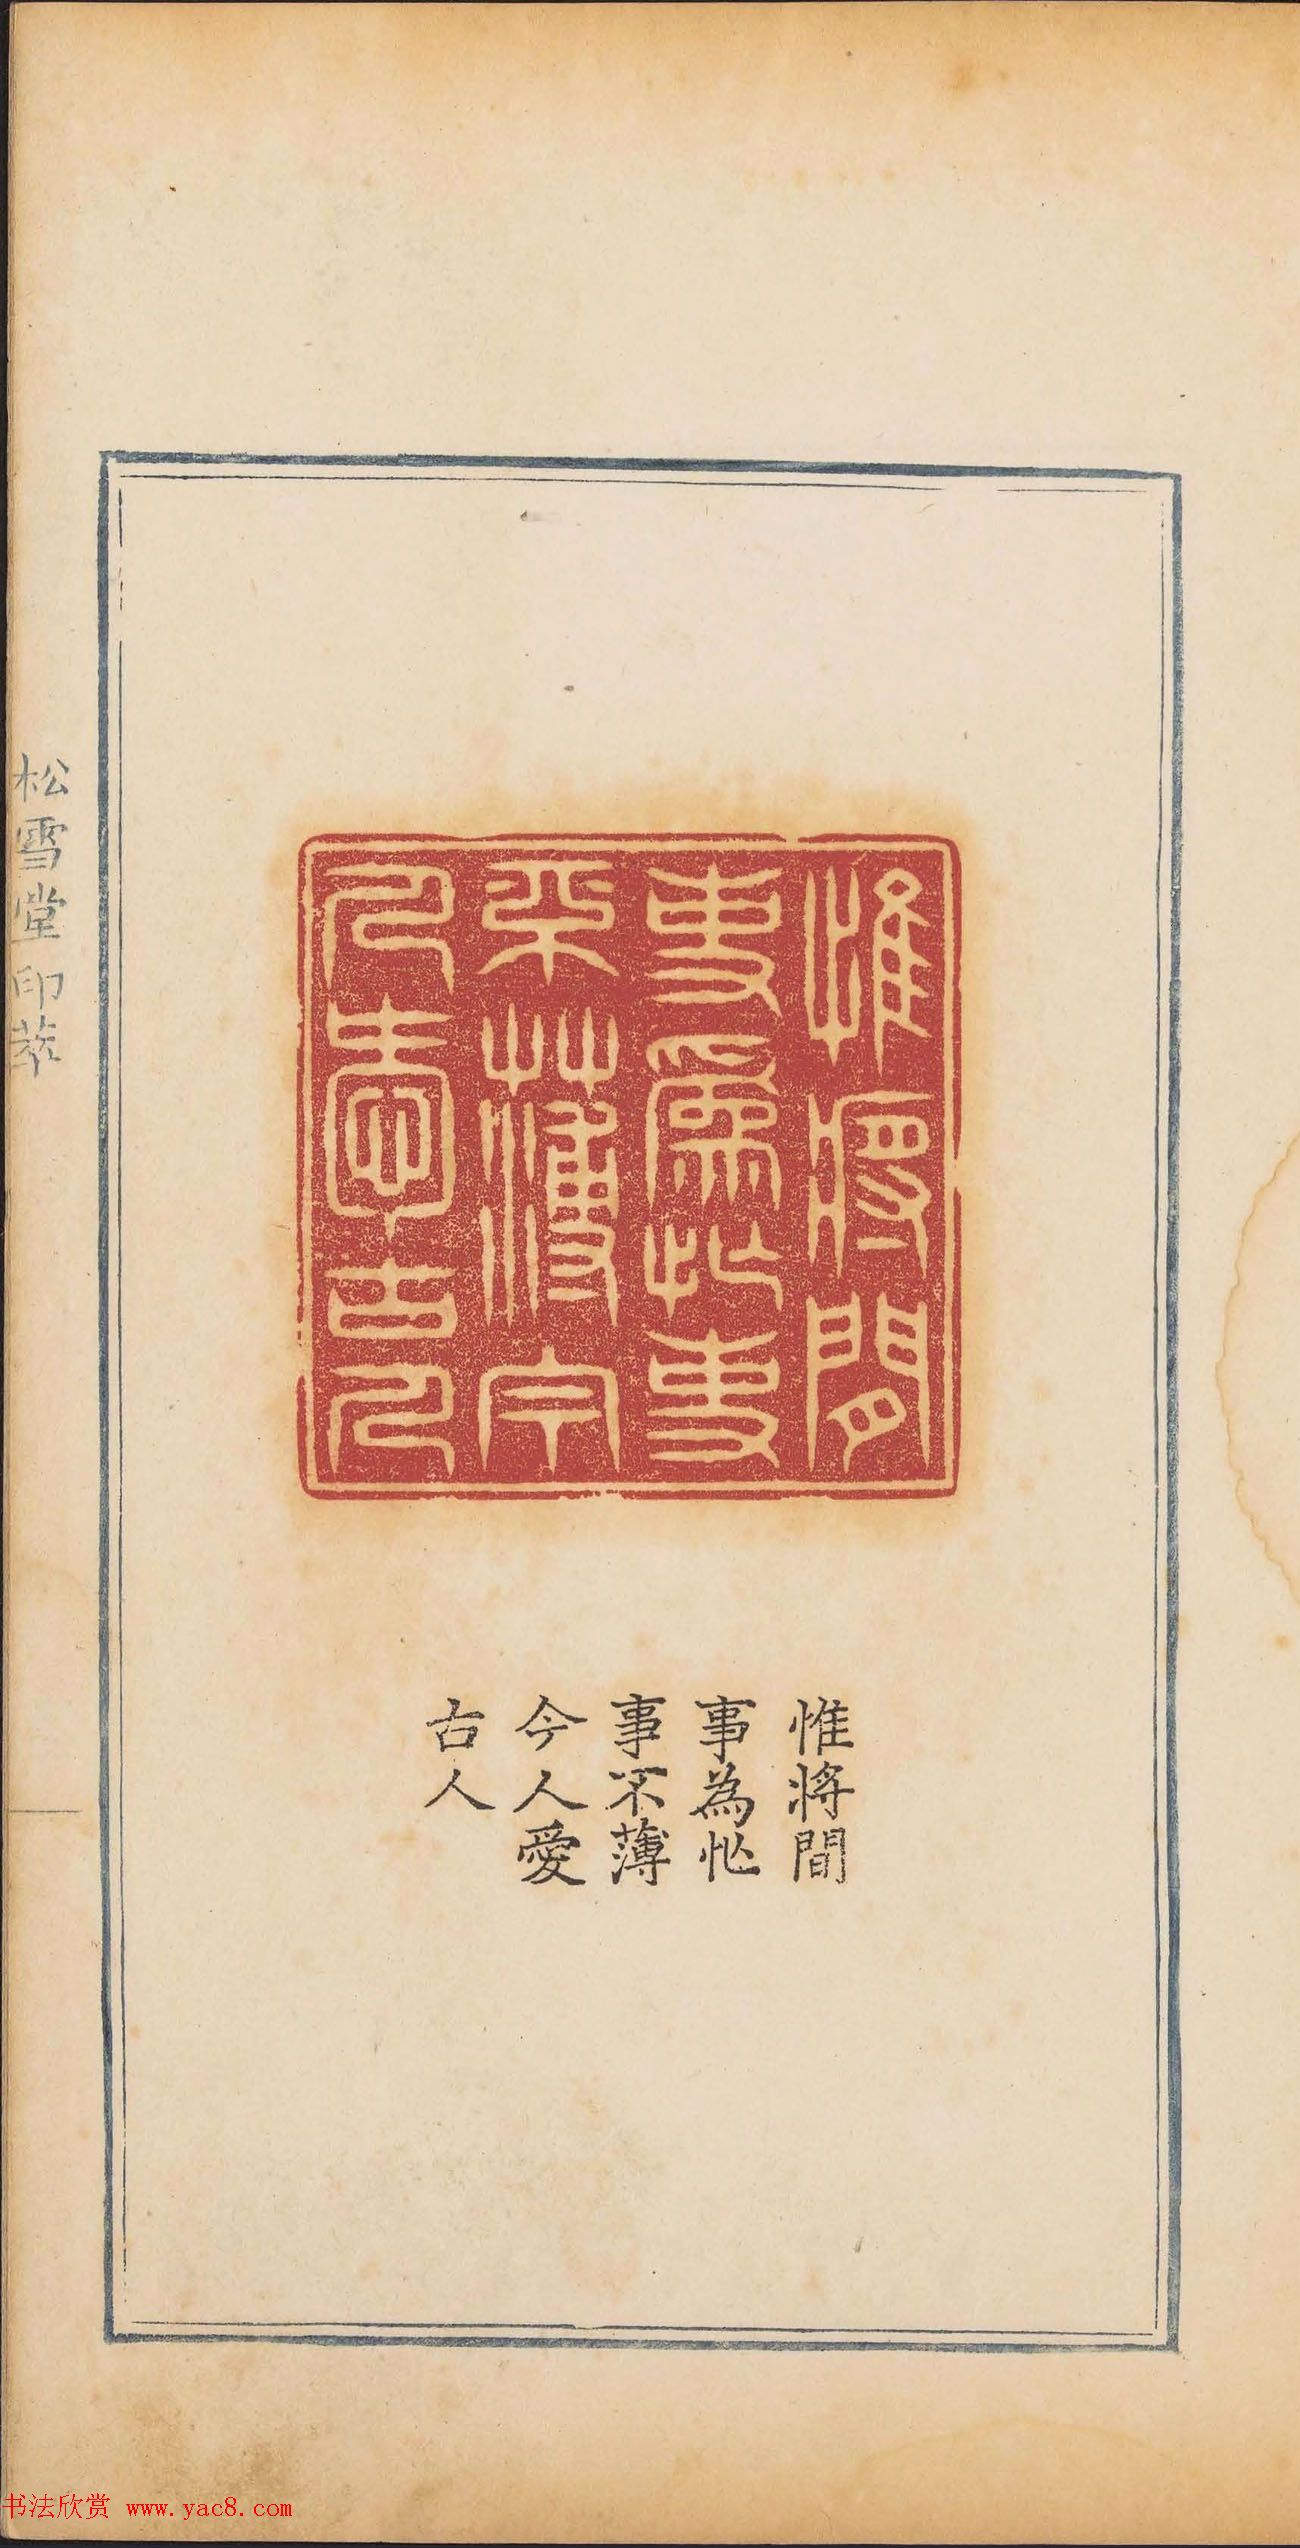 惟將閒
事爲忙
事不薄
今人愛
古人
惟將間
事為忙
事不薄
今人愛
古人
松雪堂印萃
书法欣赏 www.yac8.com